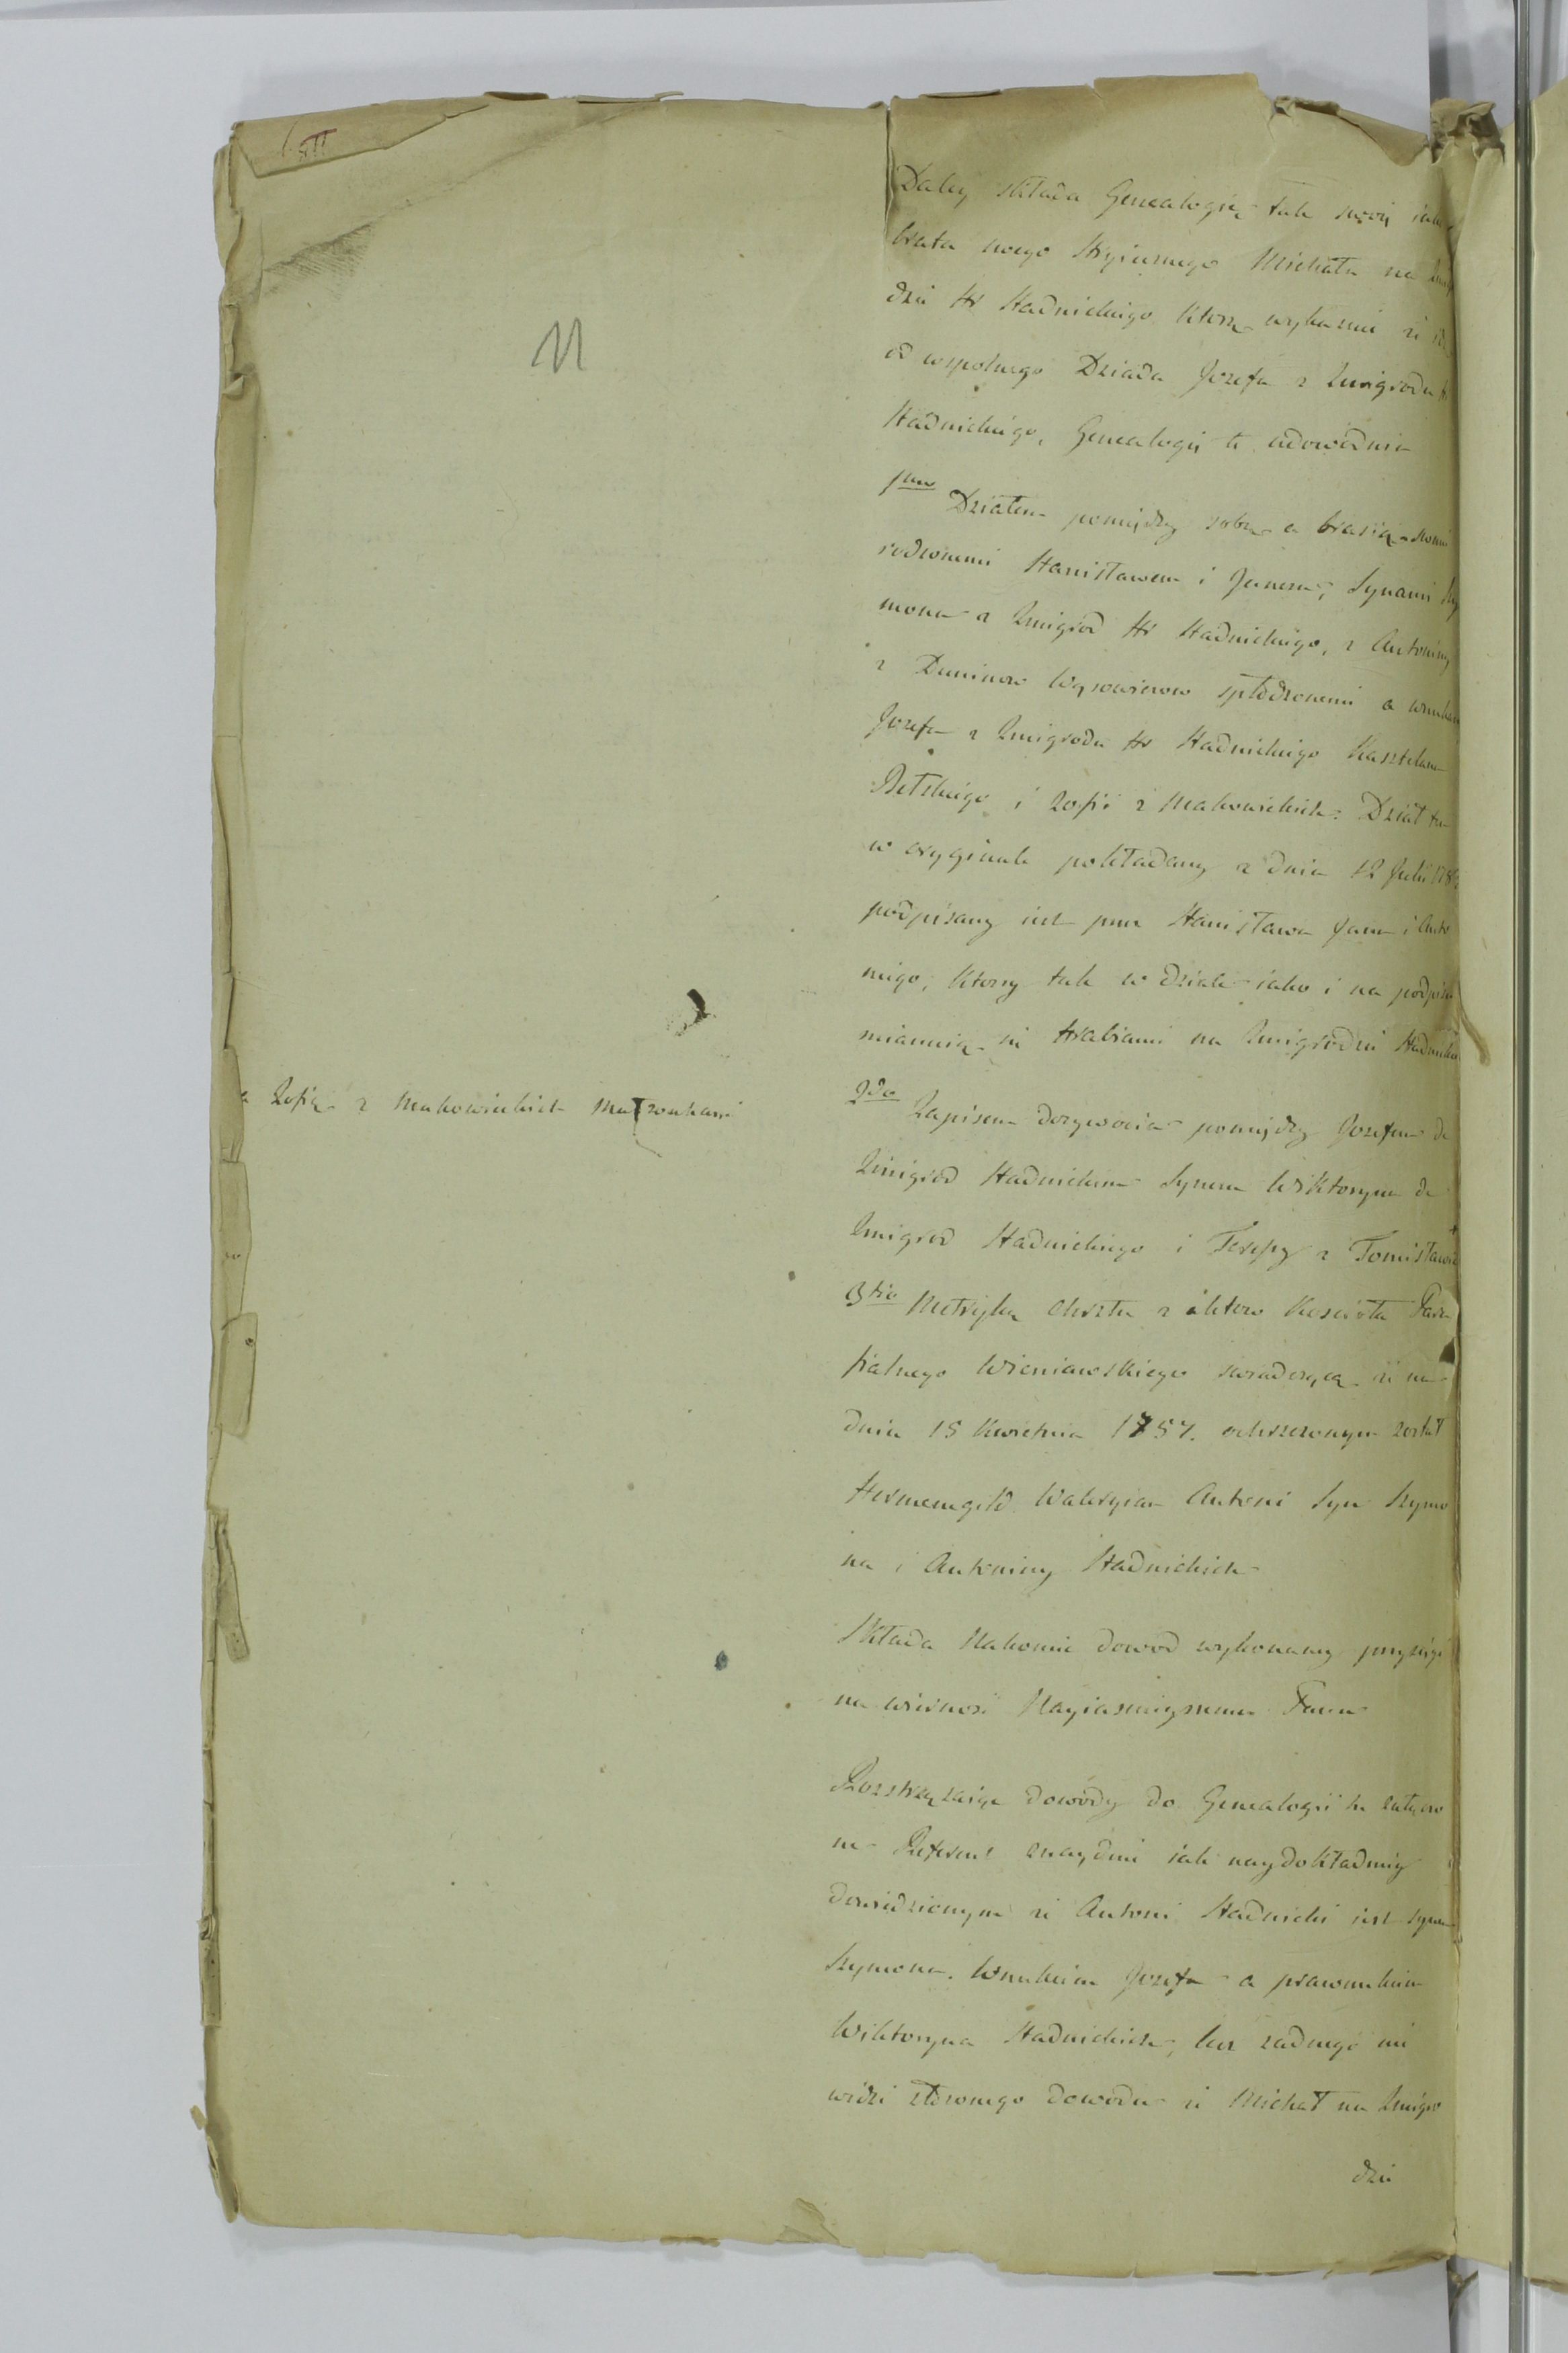 11
Daley składa Genealogię tak swoię iak
brata swego Stryiecznego Michała na
dzie Hr Stadnickiego którzy wykazuie że
od wspolnego Dziada Jozefa z Zmigrodu Hr
Stadnickiego, Genealogię tę udowadnia
1mo Działem pomiędzy sobą a bracią swemi
rodzonemi Stanisławem i Janem, Synami Szy
mona z Zmigrod Hr Stadnickiego, z Antoniny
z Duninow Wąsowiczow spłodzonemi a wnukami
Jozefa z Zmigrodu Hr Stadnickiego Kasztelana
Bełskiego i Zofii z Makowieckich. Dział ten
w oryginale pokładany z dnia 12 Julii 178
podpisany iest przez Stanisława Jana i Anto
niego, ktorzy tak w dziale iako i na podpisie
mianuią się Hrabiami na Zmigrodzie Stadnick
a Zofią z Makowieckich Małżonkami
2do Zapisem dozywocia pomiędzy Jozefem de
Zmigrod Stadnickim Synem Wiktoryna de
Zmigrod Stadnickiego i Teressy z Tomisławic
3tio Metrykę Chrztu z aktow Koscioła Para
fialnego Wieniawskiego swiadczącą że na
dniu 15 Kwietnia 1757. ochrzczonym został
Hermenegild Waleryian Antoni Syn Szymo
na i Antoniny Stadnickich
Składa Nakoniec dowod wykonaney przysięgi
na wiernosć Nayiasnieyszemu Panu
Rozstrząsaiąc dowody do Genealogii tu załączo
ne Referent znayduie iak naydokładniey
dowiedzionym że Antoni Stadnicki iest synem
Szymona, Wnukiem Jozefa a prawnukiem
Wiktoryna Stadnickich, lecz zadnego nie
widzi złożonego dowodu że Michał na Zmigro
dzie